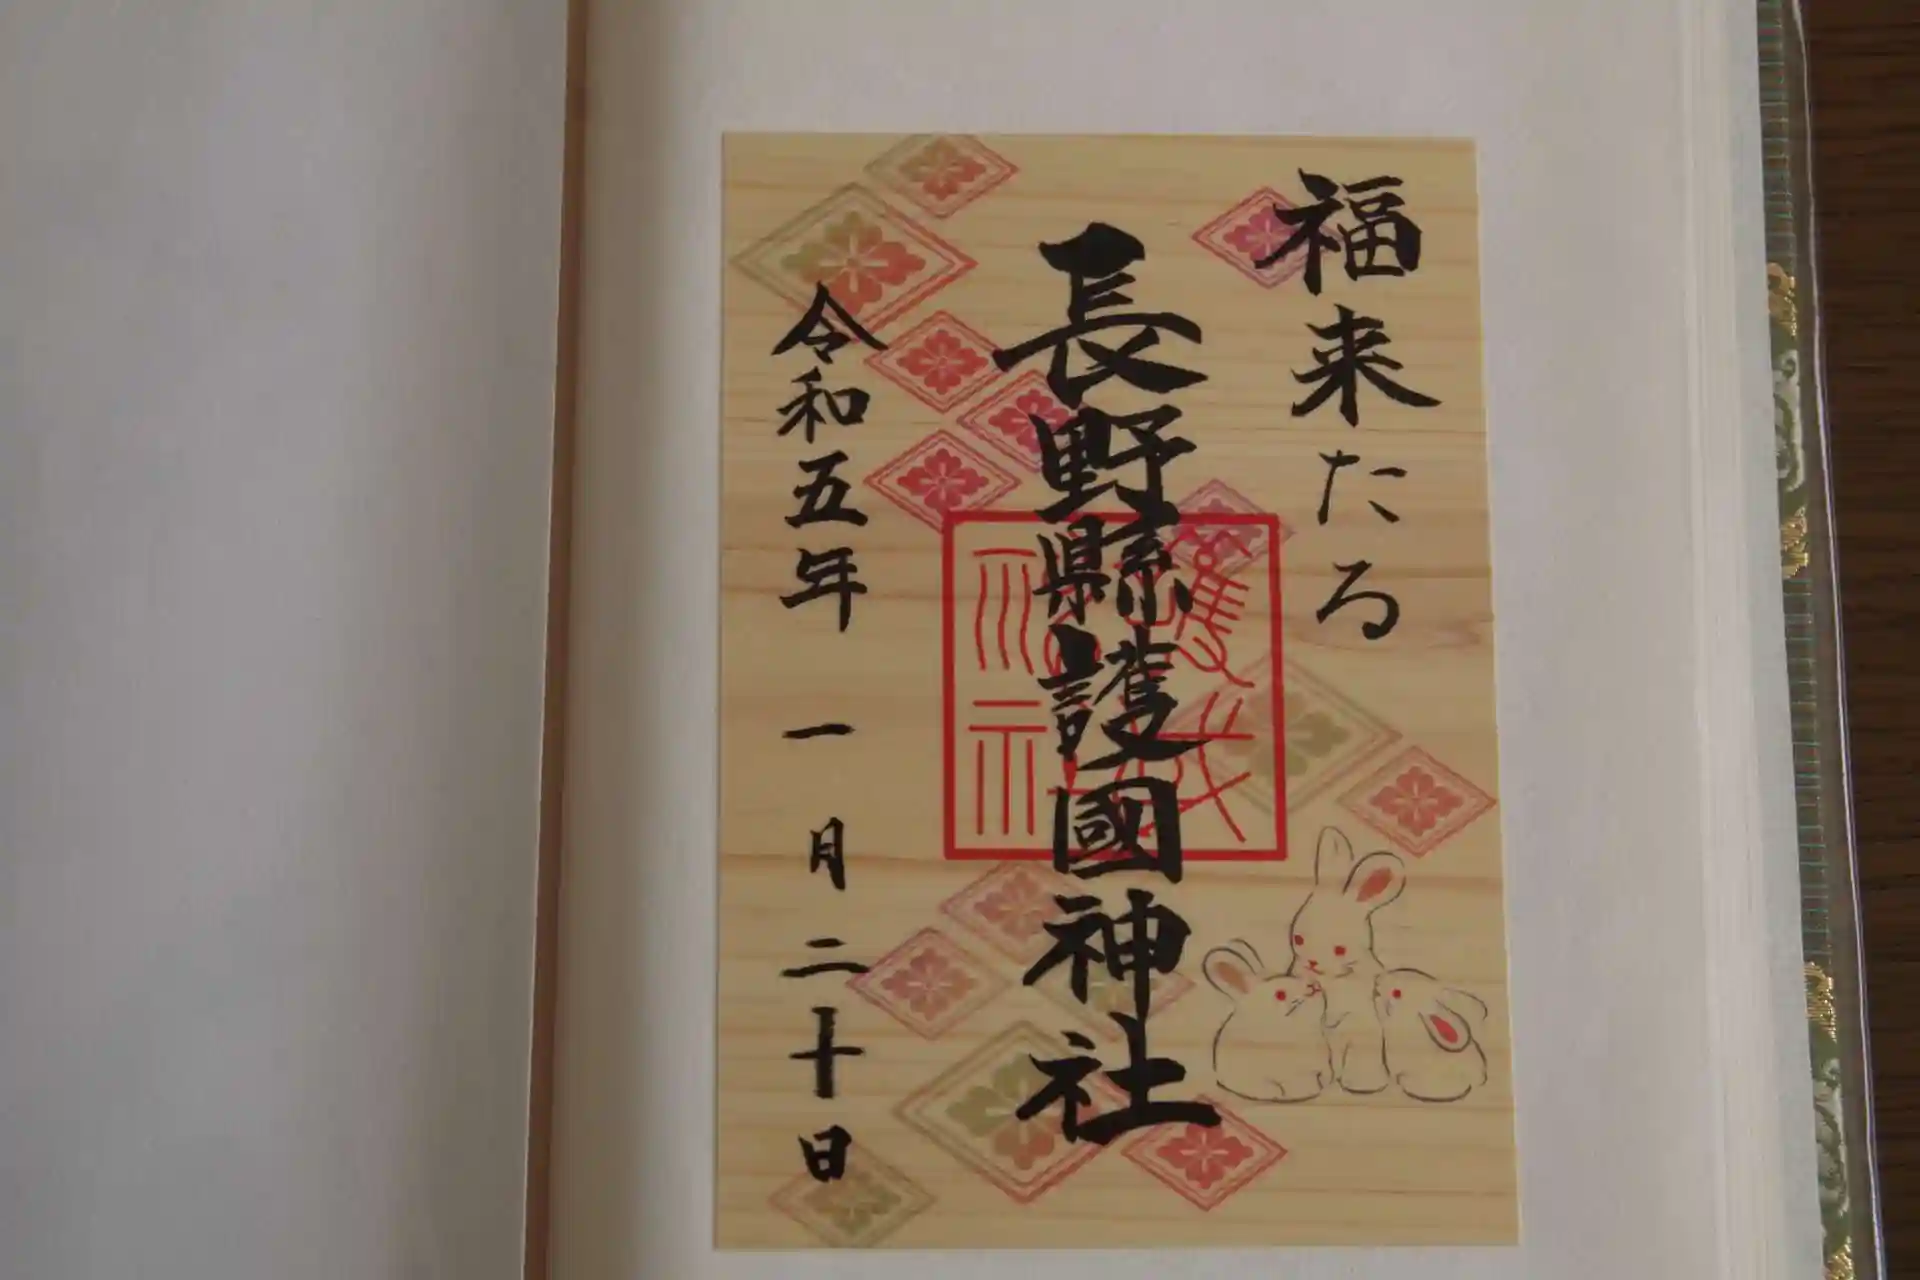 福来たる
長野縣護國神社
令和五年一月二十日